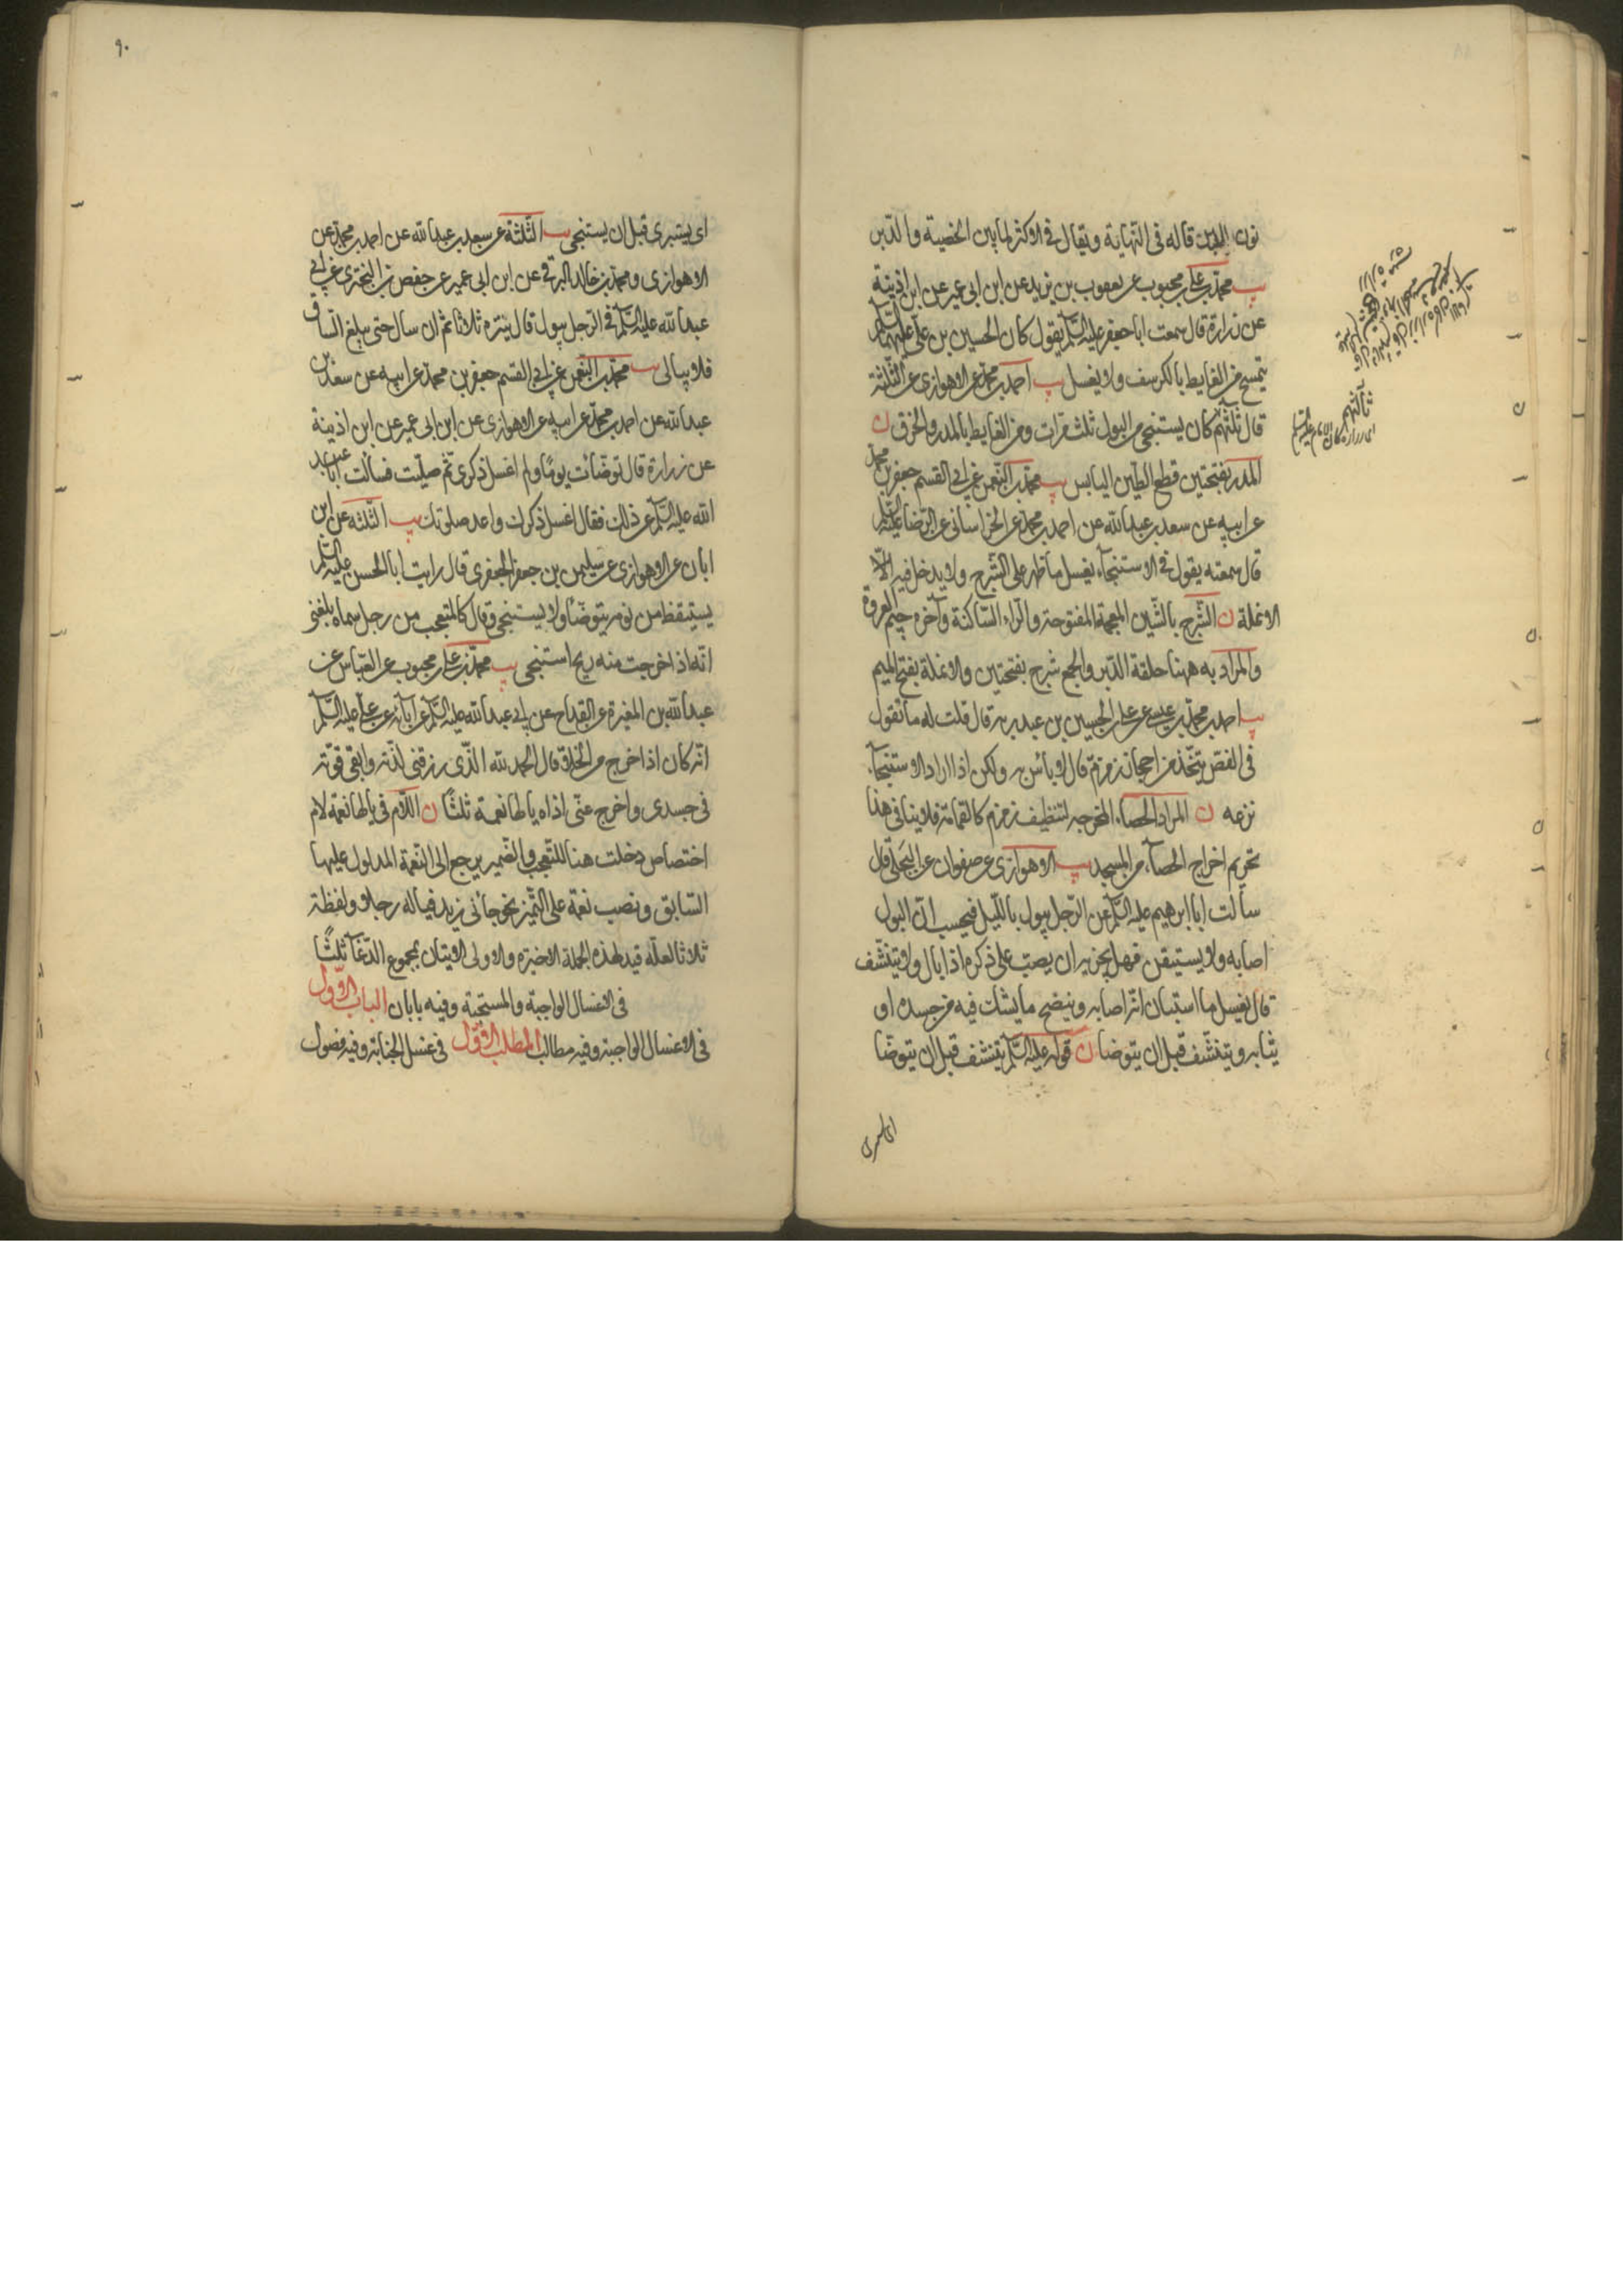 نون البدن قاله فى النهاية ويقال فى الاكثر لما بين الخصية والدبر
يب محمد بن على بن محبوب عن يعقوب بن يزيد عن ابن ابى عمير عن ابن اذينة
عن زرارة قال سمعت ابا جعفر عليه السلم يقول كان الحسين بن على عليهما السلم
يتمسح من الغايط بالكرسف ولا يغسل يب احمد بن محمد عن الاهوازى عن الثلثة
قال ثلثتهم كان يستنجى من البول ثلث مرات ومن الغايط بالمدر والخرق ن
المدر بفتحتين قطع الطين اليابس يب محمد بن النعمن عن ابى القسم جعفر بن محمد
عن ابيه عن سعد بن عبد الله عن احمد بن محمد عن الخراسانى عن الرضا عليه السلم
قال سمعته يقول فى الاستنجاء يغسل ما ظهر على الشرج ولا يدخل فيه الا
الانملة ن الشرج بالشين المعجمة المفتوحة والراء الساكنة وآخره جيم العروة
والمراد به ههنا حلقة الدبر والجمع شرج بفتحتين والانملة بفتح الميم
يب احمد بن محمد بن عيسى عن على بن الحسين بن عبد ربه قال قلت له ما تقول
فى الفص يتخذ من احجار زمزم قال لا بأس به ولكن اذا اراد الاستنجاء
نزعه ن المراد الحصاء المخرجه لتنظيف زمزم كالقمامة فلا ينافى هذا
تحريم اخراج الحصاء من المسجد يب الاهوازى عن صفوان عن البجلى قال
سألت ابا ابرهيم عليه السلم عن الرجل يبول بالليل فيحسب ان البول
اصابه ولا يستيقن فهل يجزيه ان يصب على ذكره اذا بال ولا يتنشف
قال يغسل ما استبان انه اصابه وينضح ما يشك فيه من جسده او
ثيابه ويتنشف قبل ان يتوضا ن قوله عليه السلم يتنشف قبل ان يتوضا
ثالثهم
٩٠
اى يستبرى قبل ان يستنجى يب الثلثة عن سعد بن عبد الله عن احمد بن محمد عن
الاهوازى ومحمد بن خالد البرقى عن ابن ابى عمير عن حفص بن البخترى عن ابى
عبد الله عليه السلم فى الرجل يبول قال ينتره ثلاثا ثم ان سال حتى يبلغ الساق
فلا يبالى يب محمد بن النعمن عن ابى القسم جعفر بن محمد عن ابيه عن سعد بن
عبد الله عن احمد بن محمد عن ابيه عن الاهوازى عن ابن ابى عمير عن ابن اذينة
عن زرارة قال توضأت يومًا ولم اغسل ذكرى ثم صليت فسألت ابا عبد
الله عليه السلم عن ذلك فقال اغسل ذكرك واعد صلوتك يب الثلثه عن ابن
ابان عن الاهوازى عن سليمن بن جعفر الجعفرى قال رايت ابا الحسن عليه السلم
يستيقظ من نومه يتوضأ ولا يستنجى وقال كالمتعجب من رجل سماه بلغنى
انه اذا خرجت منه ريح استنجى يب محمد بن على بن محبوب عن العباس عن
عبد الله بن المغيرة عن القداح عن ابى عبد الله عليه السلم عن آبائه عن على عليه السلم
انه كان اذا خرج من الخلا قال الحمد لله الذى رزقنى لذته وابقى قوته
فى جسدى واخرج عنى اذاه يالها نعمة ثلثًا ن اللام فى يالها نعمة لام
اختصاص دخلت هنا للتعجب والضمير يرجع الى النعمة المدلول عليها
السابق ونصب نعمة على التميز نحو جائنى زيد فياله رجلا ولفظة
ثلاثا لعله قيد لهذه الجملة الاخيرة والاولى الاتيان بمجموع الدعآ ثلثًا
فى الاغسال الواجبة والمستحبة وفيه بابان الباب الاول
فى الاغسال الواجبة وفيه مطالب المطلب الاول فى غسل الجنابة وفيه فصول